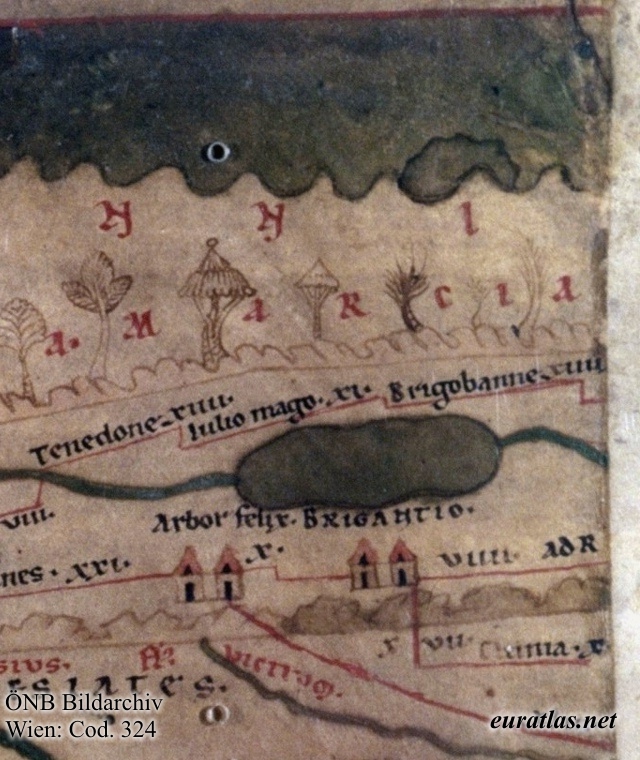 A. M A R C I A
Tenedone. xiiii. Iulio mago. xi. Brigobanne. xiiii
viii.
Arbor felix. BRIGANTIO.
nes. xxi. x. viiii. adR
x vii
sius.
ESIATES.
ÖNB Bildarchiv
Wien: Cod. 324
euratlas.net